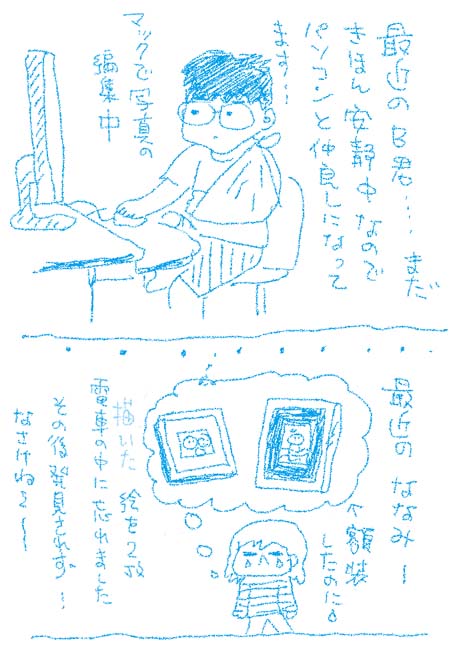 最近のB君… まだ
きほん安静中なので
パソコンと仲良しになって
ます…
マックで写真の
編集中
最近の ななみー
↑額装
したのに
描いた 絵を2枚
電車の中に忘れました
その後発見されず…
なさけねえー